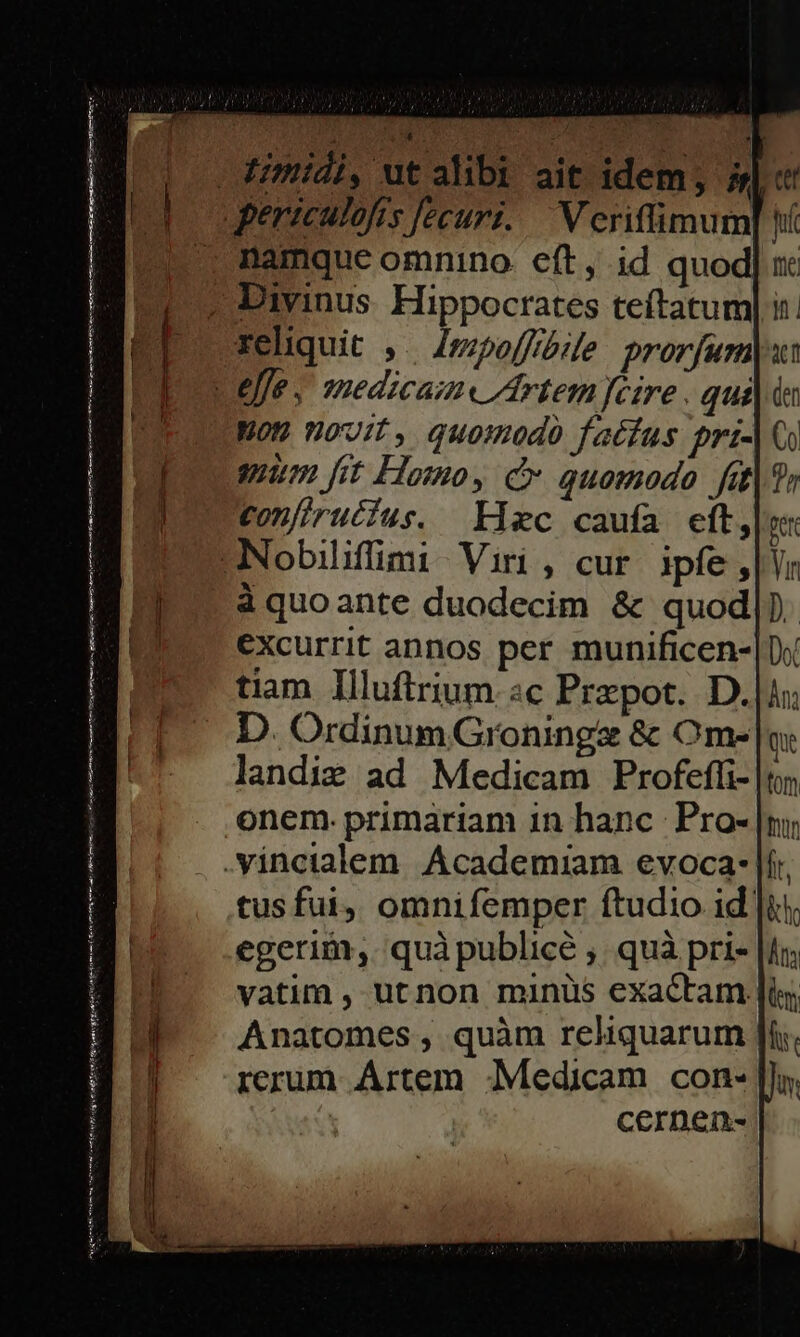 timidi, ut alibi ait idem, in
periculoſis ſecuri. Veriſſimum
namque omnino eſt, id quod
Divinus Hippocrates teſtatum
reliquit, Impoſſibile prorſum
eſſe, medicam Artem ſcire. qui
non novit, quomodò factus pri-
mùm ſit Homo, & quomodo ſit
conſtructus. Hæc cauſa eſt,
Nobiliſſimi Viri, cur ipſe,
à quo ante duodecim & quod
excurrit annos per munificen-
tiam Illuſtrium ac Præpot. D.
D. Ordinum Groningæ & Om-
landiæ ad Medicam Profeſſi-
onem primariam in hanc Pro-
vincialem Academiam evoca-
tus fui, omni ſemper ſtudio id
egerim, quà publicè, quà pri-
vatim, ut non minùs exactam
Anatomes, quàm reliquarum
rerum Artem Medicam con-
cernen-